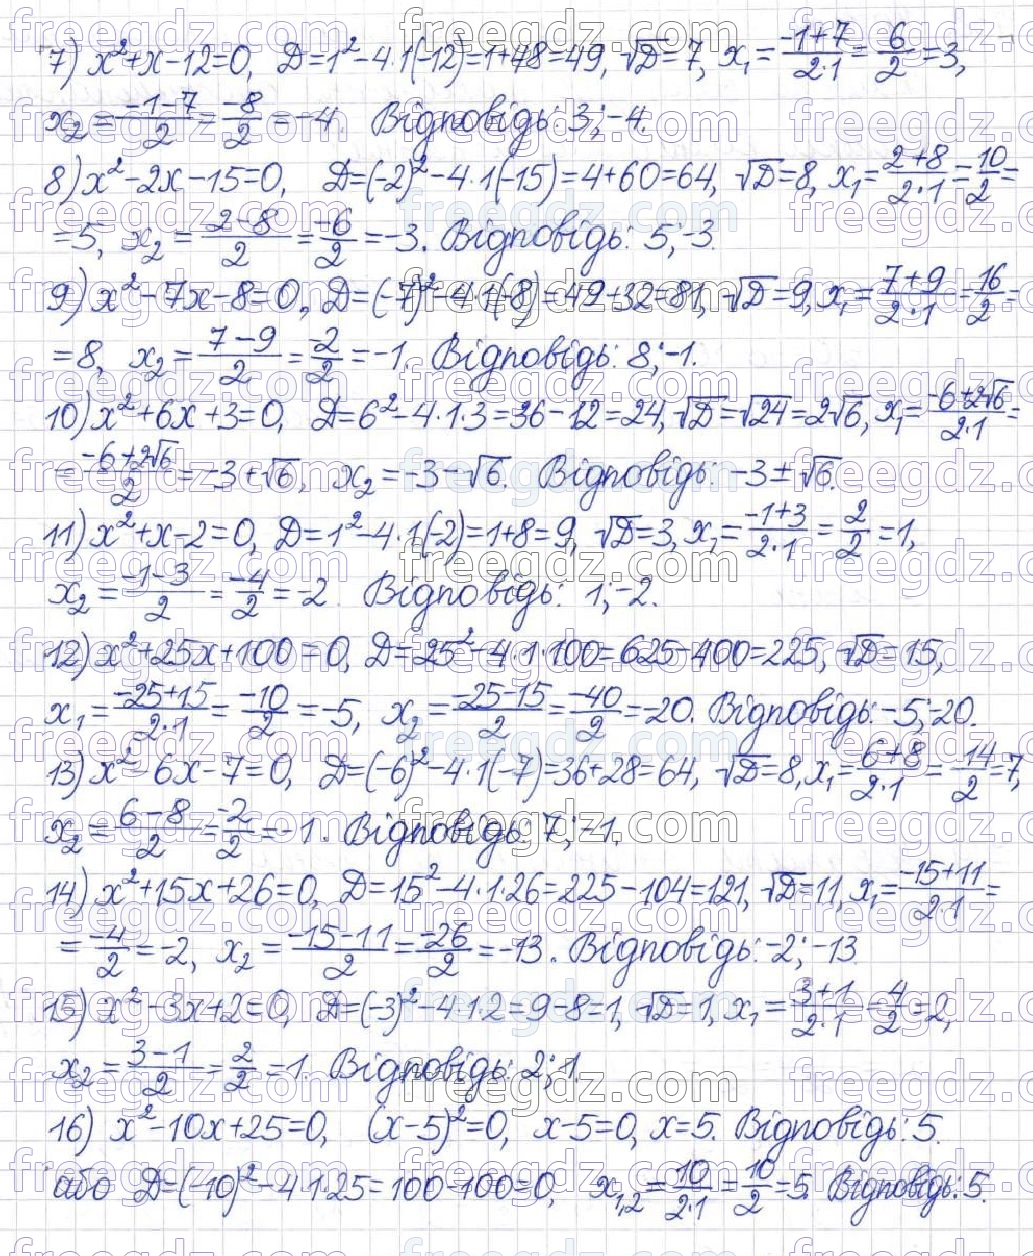 7) x²+x-12=0, D=1²-4·1(-12)=1+48=49, √D=7, x₁=(-1+7)/(2·1)=6/2=3,
x₂=(-1-7)/2=-8/2=-4. Відповідь: 3; -4.
8) x²-2x-15=0, D=(-2)²-4·1(-15)=4+60=64, √D=8, x₁=(2+8)/(2·1)=10/2=
=5, x₂=(2-8)/2=-6/2=-3. Відповідь: 5; -3.
9) x²-7x-8=0, D=(-7)²-4·1(-8)=49+32=81, √D=9, x₁=(7+9)/(2·1)=16/2=
=8, x₂=(7-9)/2=-2/2=-1. Відповідь: 8; -1.
10) x²+6x+3=0, D=6²-4·1·3=36-12=24, √D=√24=2√6, x₁=(-6+2√6)/(2·1)=
=(-6+2√6)/2=-3+√6, x₂=-3-√6. Відповідь: -3±√6.
11) x²+x-2=0, D=1²-4·1(-2)=1+8=9, √D=3, x₁=(-1+3)/(2·1)=2/2=1,
x₂=(-1-3)/2=-4/2=-2. Відповідь: 1; -2.
12) x²+25x+100=0, D=25²-4·1·100=625-400=225, √D=15,
x₁=(-25+15)/(2·1)=-10/2=-5, x₂=(-25-15)/2=-40/2=-20. Відповідь: -5; -20.
13) x²-6x-7=0, D=(-6)²-4·1(-7)=36+28=64, √D=8, x₁=(6+8)/(2·1)=14/2=7,
x₂=(6-8)/2=-2/2=-1. Відповідь: 7; -1.
14) x²+15x+26=0, D=15²-4·1·26=225-104=121, √D=11, x₁=(-15+11)/(2·1)=
=-4/2=-2, x₂=(-15-11)/2=-26/2=-13. Відповідь: -2; -13.
15) x²-3x+2=0, D=(-3)²-4·1·2=9-8=1, √D=1, x₁=(3+1)/(2·1)=4/2=2,
x₂=(3-1)/2=2/2=1. Відповідь: 2; 1.
16) x²-10x+25=0, (x-5)²=0, x-5=0, x=5. Відповідь: 5.
або D=(-10)²-4·1·25=100-100=0, x₁,₂=10/(2·1)=10/2=5. Відповідь: 5.